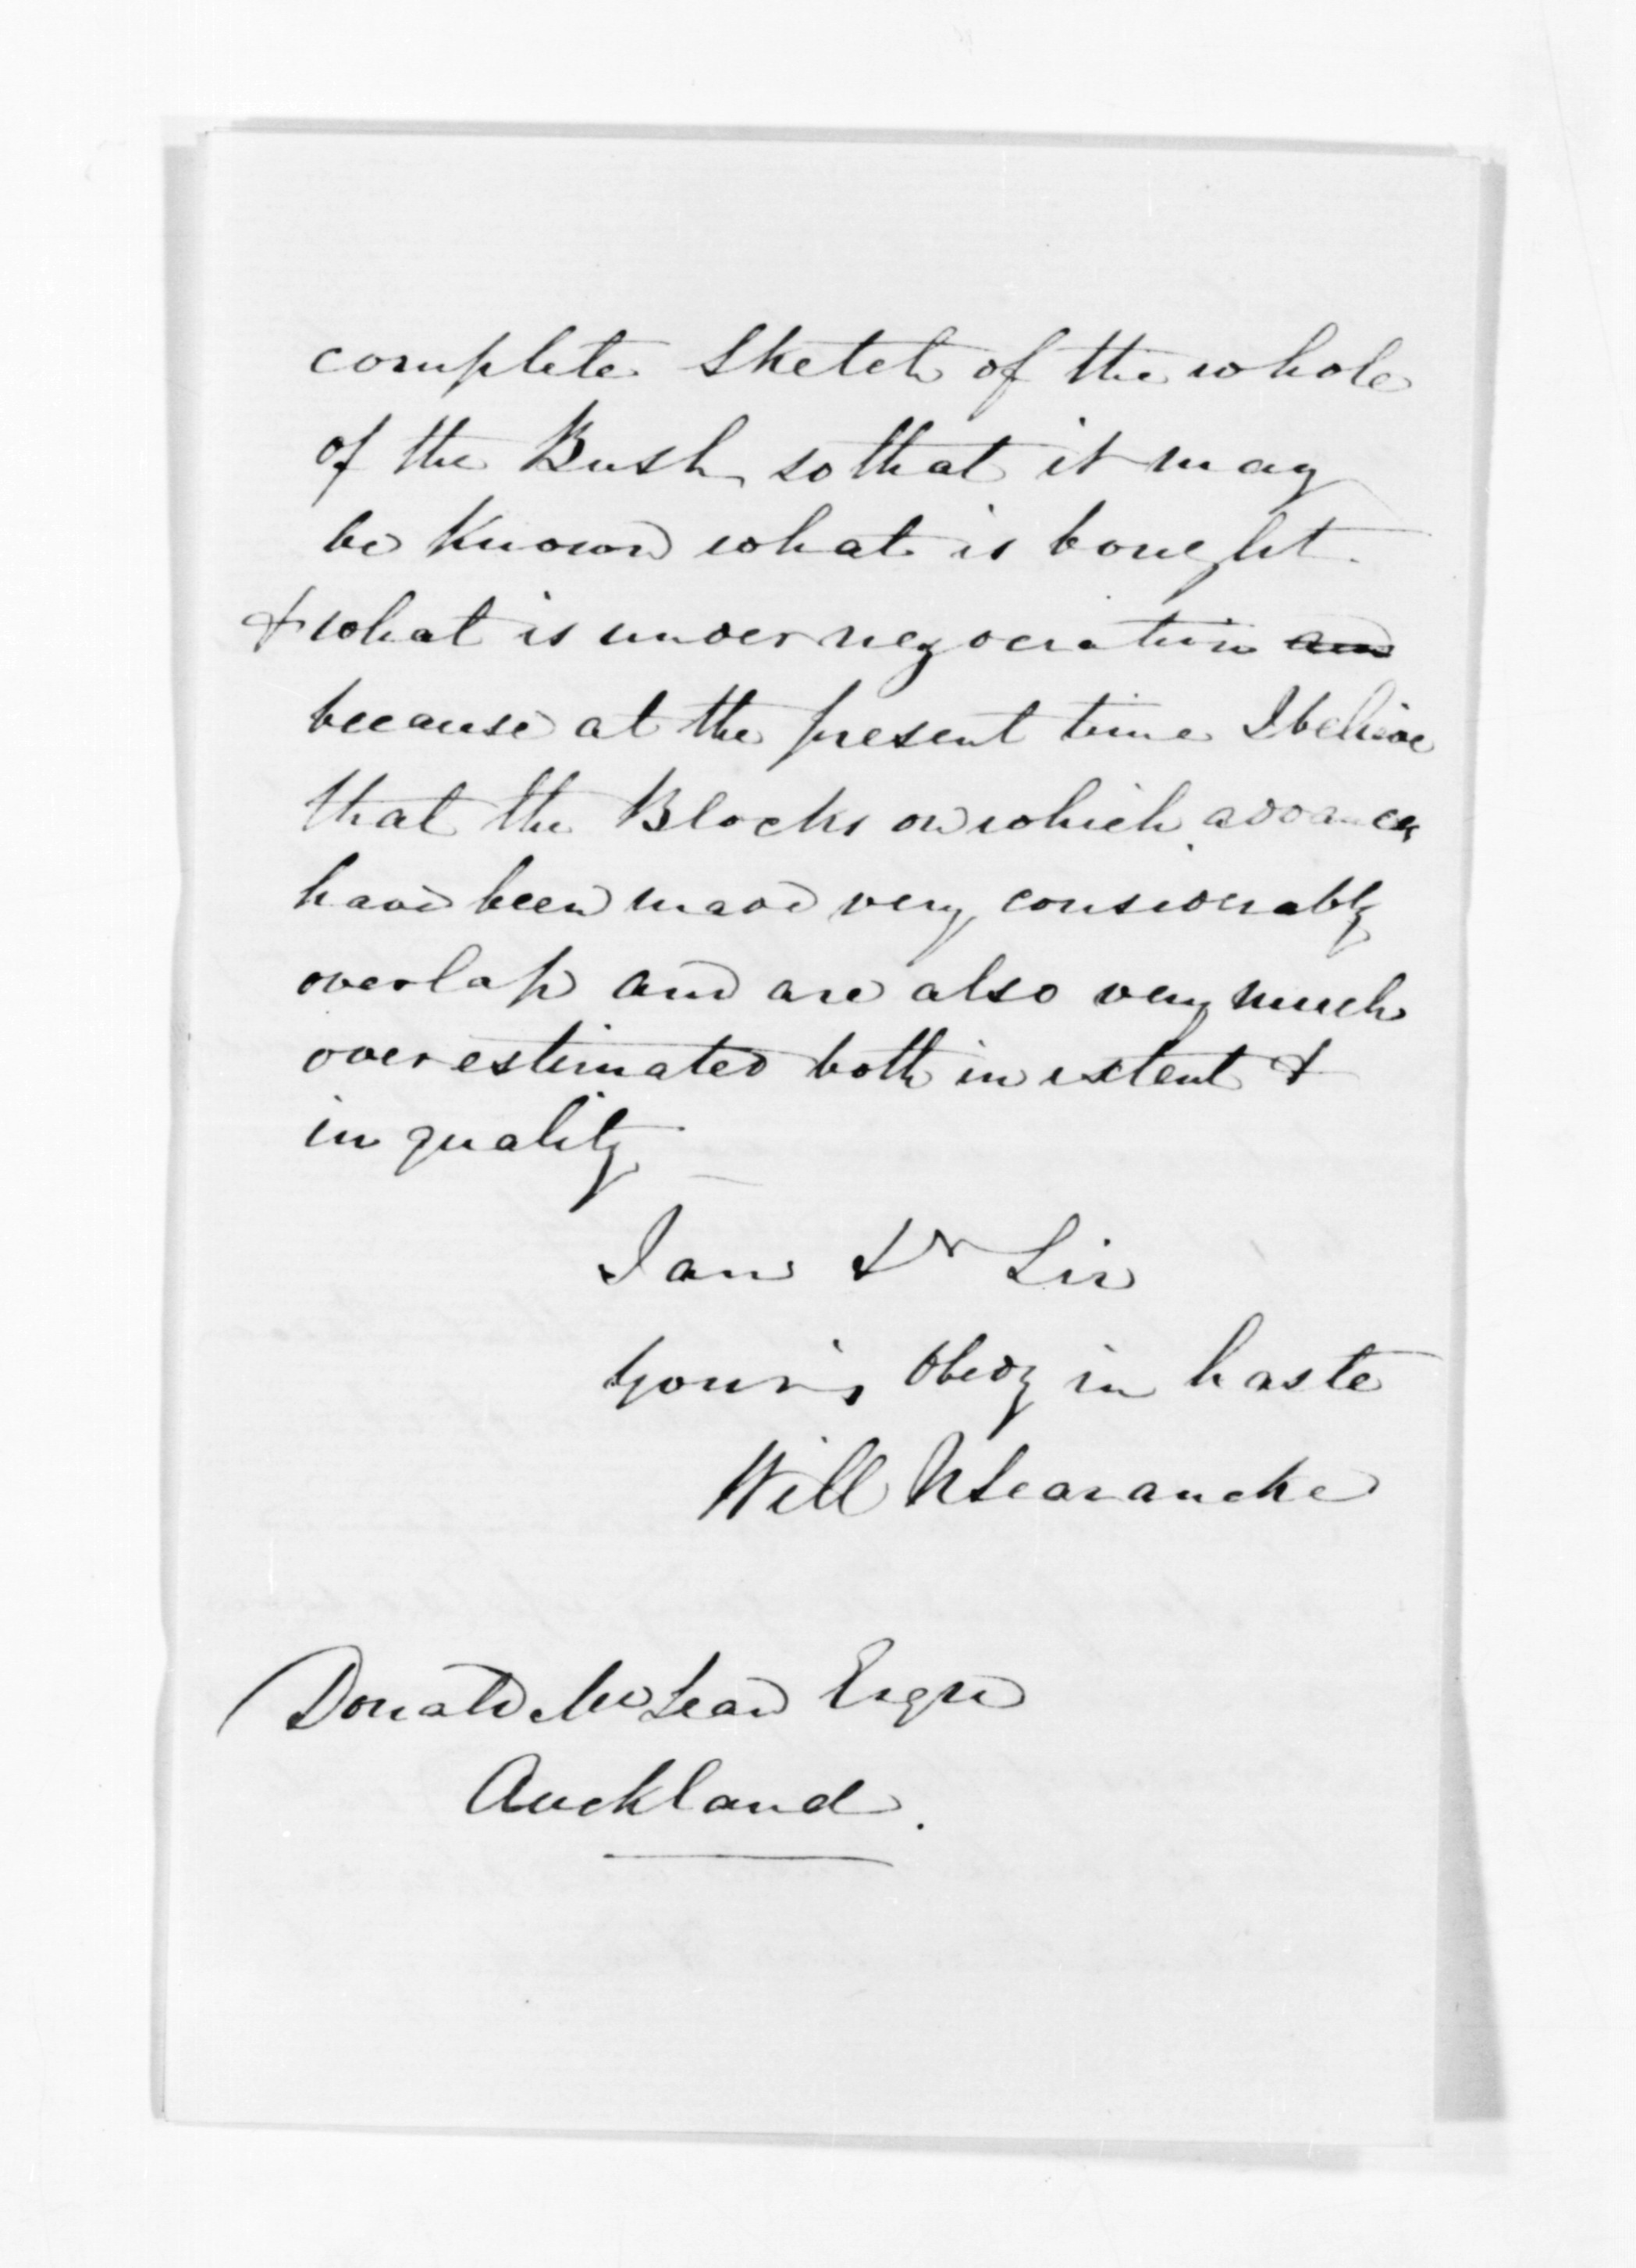 complete Sketch of the whole
of the Bush so that it may
be Known what is bought
& what is under negociation ~~and~~
because at the present time I believe
that the Blocks on which advances
have been made very considerably
overlap and are also very much
over estimated both in extent &
in quality
I am Dr Sir
Your's Obedy in haste
Will N Searancke
Donald McLean Esqre
Auckland.